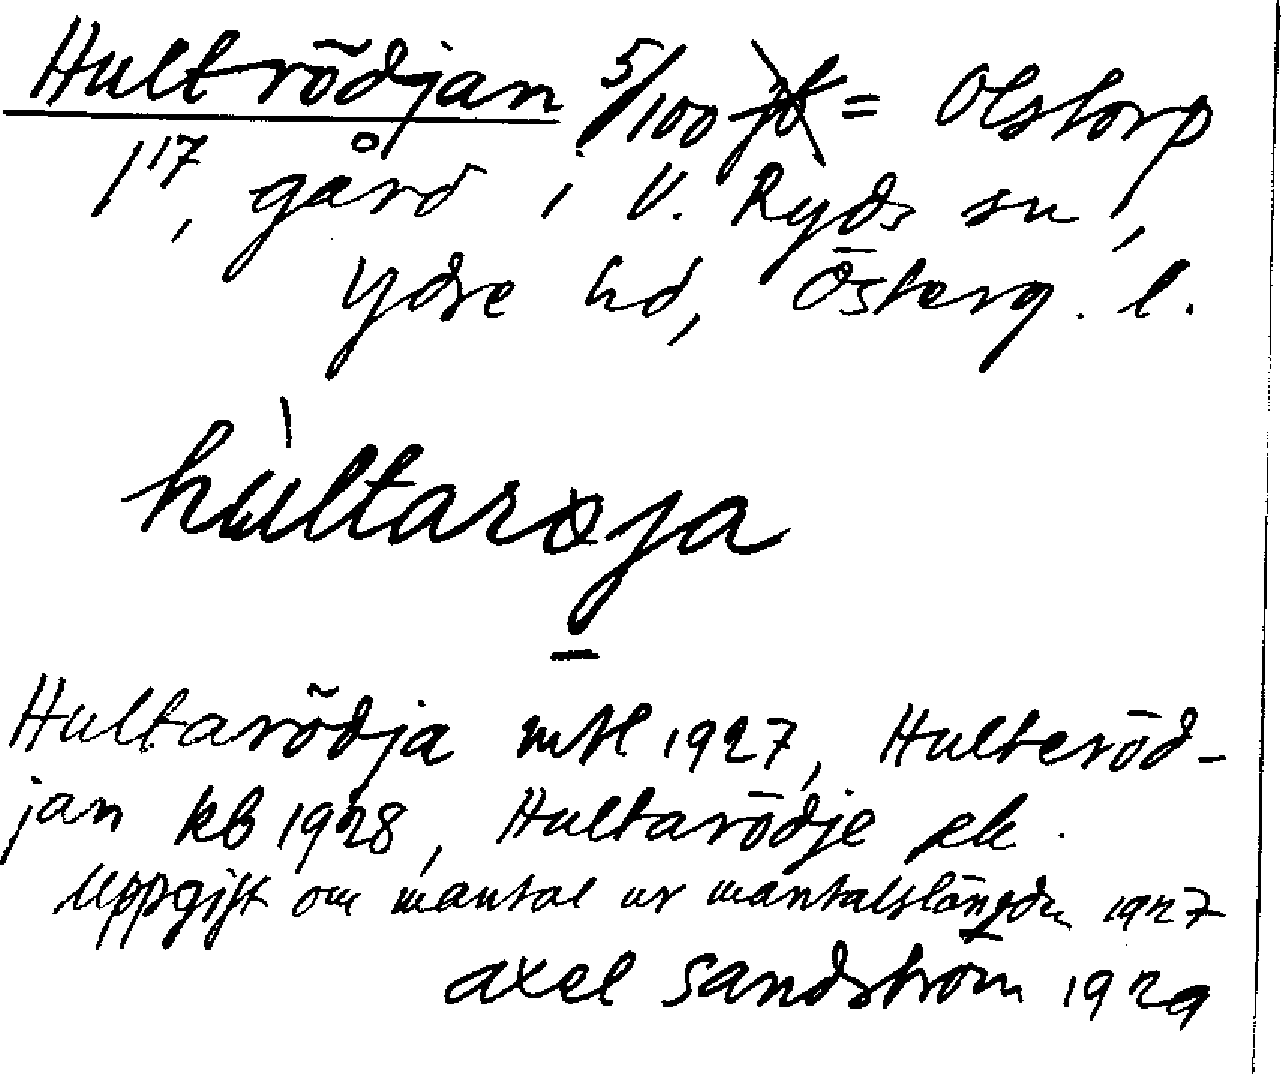 Hultrödjan 5/100 = Olstorp
1 17, gård i V. Ryds sn,
Ydre hd, Österg. l.
hùltarøja
Hultarödja mtl 1927, Hulteröd-
jan kb 1928, Hultarödje ek.
Uppgift om mantal ur mantalslängden 1927
Axel Sandström 1929